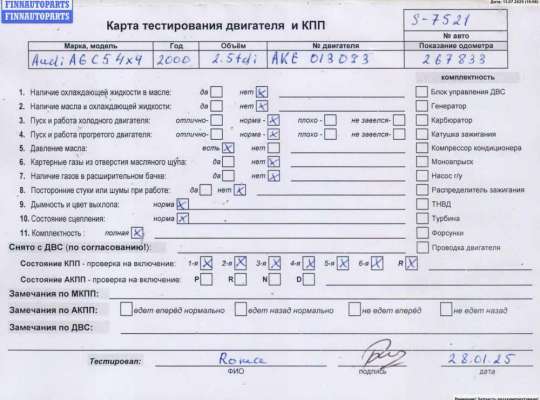 FINNAUTOPARTS
FINNAUTOPARTS
Карта тестирования двигателя и КПП
S-7521
№ авто
Марка, модель Год Объём № двигателя Показание одометра
Audi A6 C5 4x4 2000 2.5tdi AKE 013083 267833
комплектность
1. Наличие охлаждающей жидкости в масле: да нет Блок управления ДВС
2. Наличие масла в охлаждающей жидкости: да нет Генератор
3. Пуск и работа холодного двигателя: отлично- норма - плохо - не завелся- Карбюратор
4. Пуск и работа прогретого двигателя: отлично- норма - плохо - не завелся- Катушка зажигания
5. Давление масла: есть нет Компрессор кондиционера
6. Картерные газы из отверстия масляного щупа: да нет Моновпрыск
7. Наличие газов в расширительном бачке: да нет Насос г/у
8. Посторонние стуки или шумы при работе: да нет Распределитель зажигания
9. Дымность и цвет выхлопа: норма ТНВД
10. Состояние сцепления: норма Турбина
11. Комплектность : полная Форсунки
Снято с ДВС (по согласованию!): Проводка двигателя
Состояние КПП - проверка на включение: 1-я 2-я 3-я 4-я 5-я 6-я R
Состояние АКПП - проверка на включение: P R N D
Замечания по МКПП:
Замечания по АКПП: едет вперёд нормально едет назад нормально не едет вперёд не едет назад
Замечания по ДВС:
Тестировал: Roma 28.01.25
ФИО подпись дата